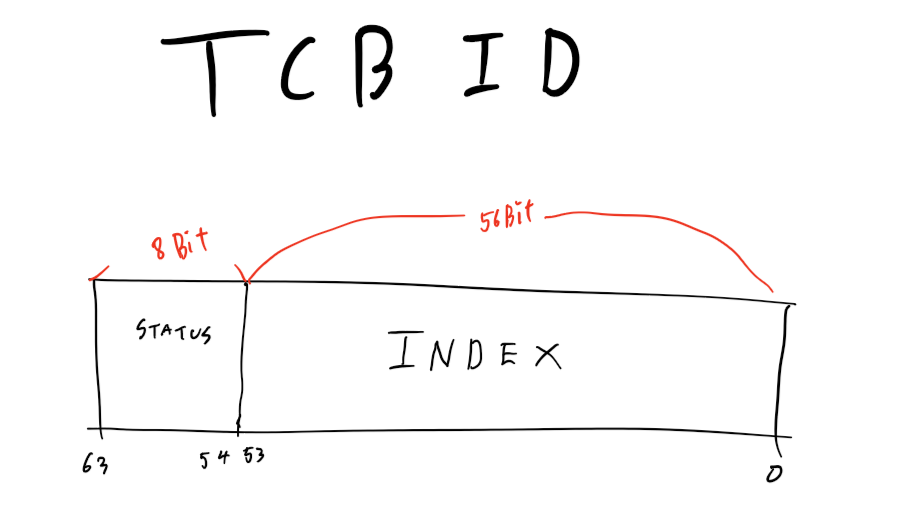 TCB ID
8 Bit 56Bit
STATUS INDEX
63 54 53 0